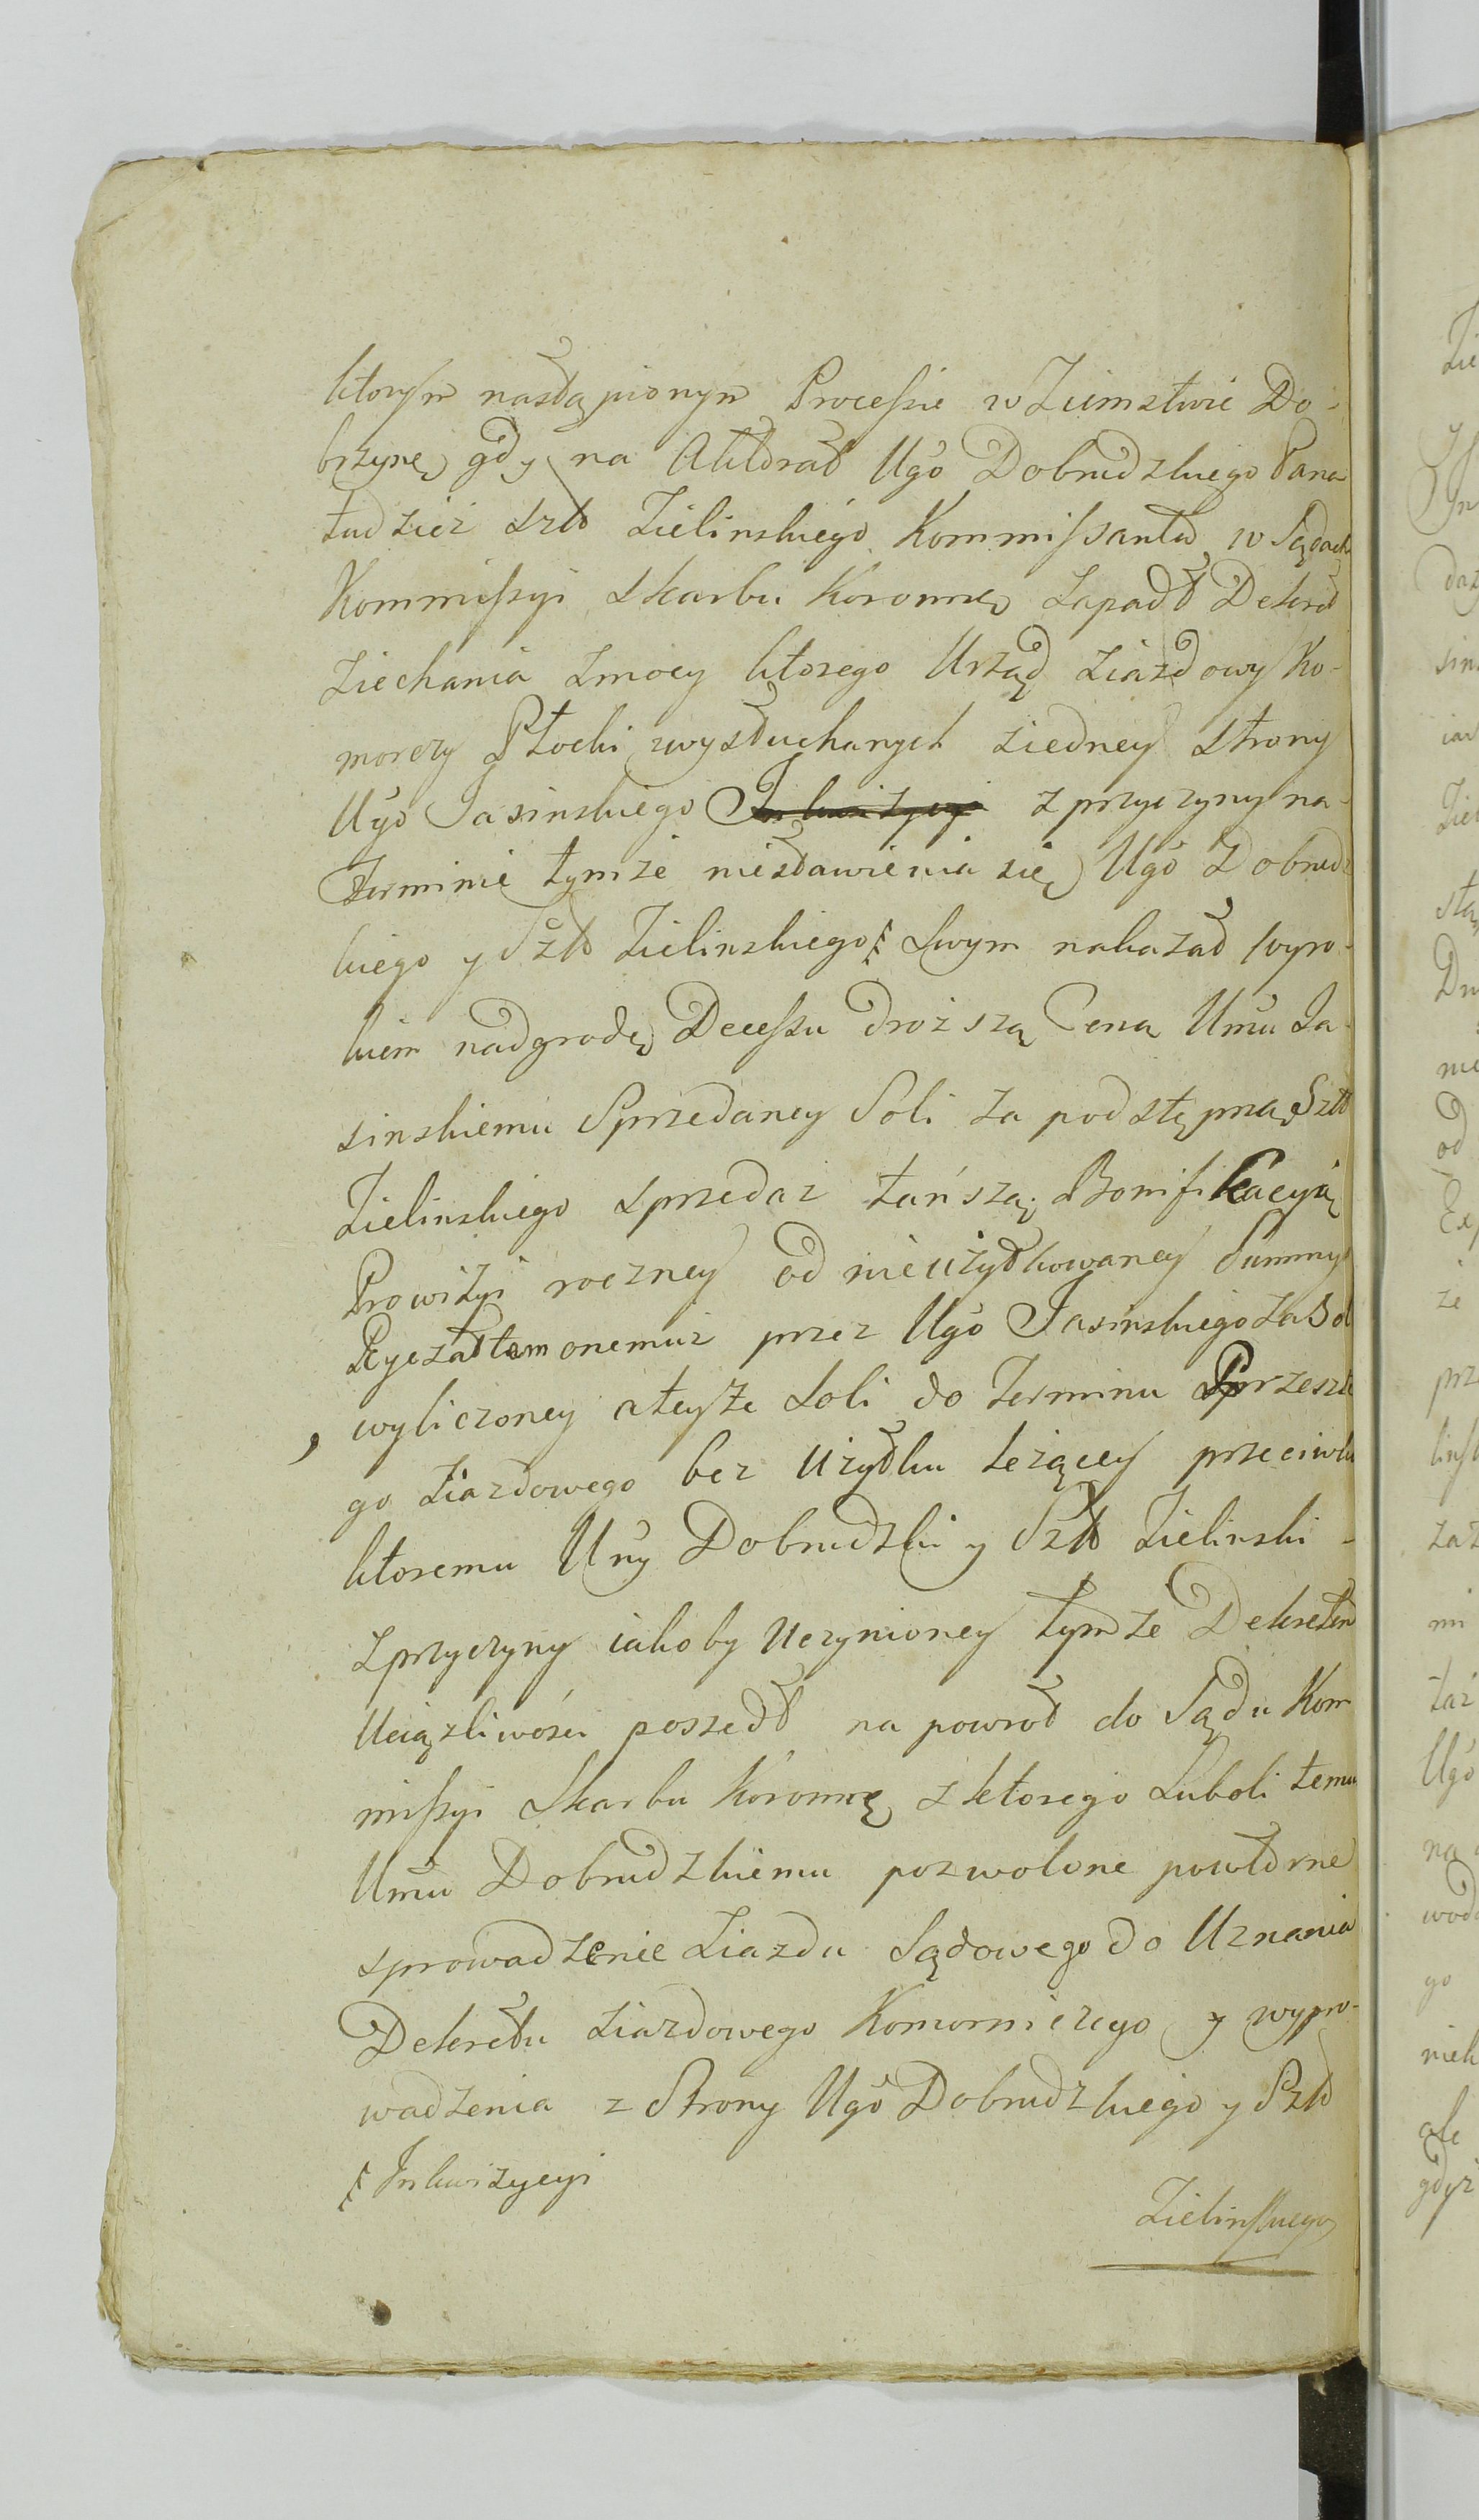 ktorym nastąpionym Processie w Ziemstwie Do-
brzynę gdy na Aktorat Ugo Dobrudzkiego Pana
tudziez Szto Zielinskiego Kommissanta w Sądach
Kommissyi Skarbu Koronnę Zapadł Dekret
Ziechania zmocy ktorego Urząd Ziazdowy Ko-
morczy Płocki wysłuchanych ziedney strony
Ugo Jasinskiego Inkwizycyi z przyczyny na-
Terminie tymże niestawienia się Ugo Dobrudz
kiego y Szto Zielinskiego Swym nakazał wyro-
kiem nadgrodę Decessu drozszą Ceną Umu Ja-
sinskiemu Sprzedaney Soli za podstępną Szto
Zielinskiego sprzedaz tańszą, Bonifikacyią
Prowizyi roczney od nieużytkowaney Summy
Ryczałtem onemuż przez Ugo Jasinskiego za Sol
wyliczoney a teyże Soli do Terminu Przeszłe
go Ziazdowego bez Użytku leżącey przeciwko
ktoremu Uny Dobrudzki y Szto Zielinski -
z przyczyny iakoby Uczynioney tymże Dekretem
Uciązliwości poszedł na powrot do Sądu Kom
missyi Skarbu Koronnę z ktorego Luboli temu
Umu Dobrudzkiemu pozwolone powtorne
sprowadzenie Ziazdu Sądowego do Uznania
Dekretu Ziazdowego Komorniczego y wypro-
wadzenia z Strony Ugo Dobrudzkiego y Szto
Inkwizycyi
Zielinskiego